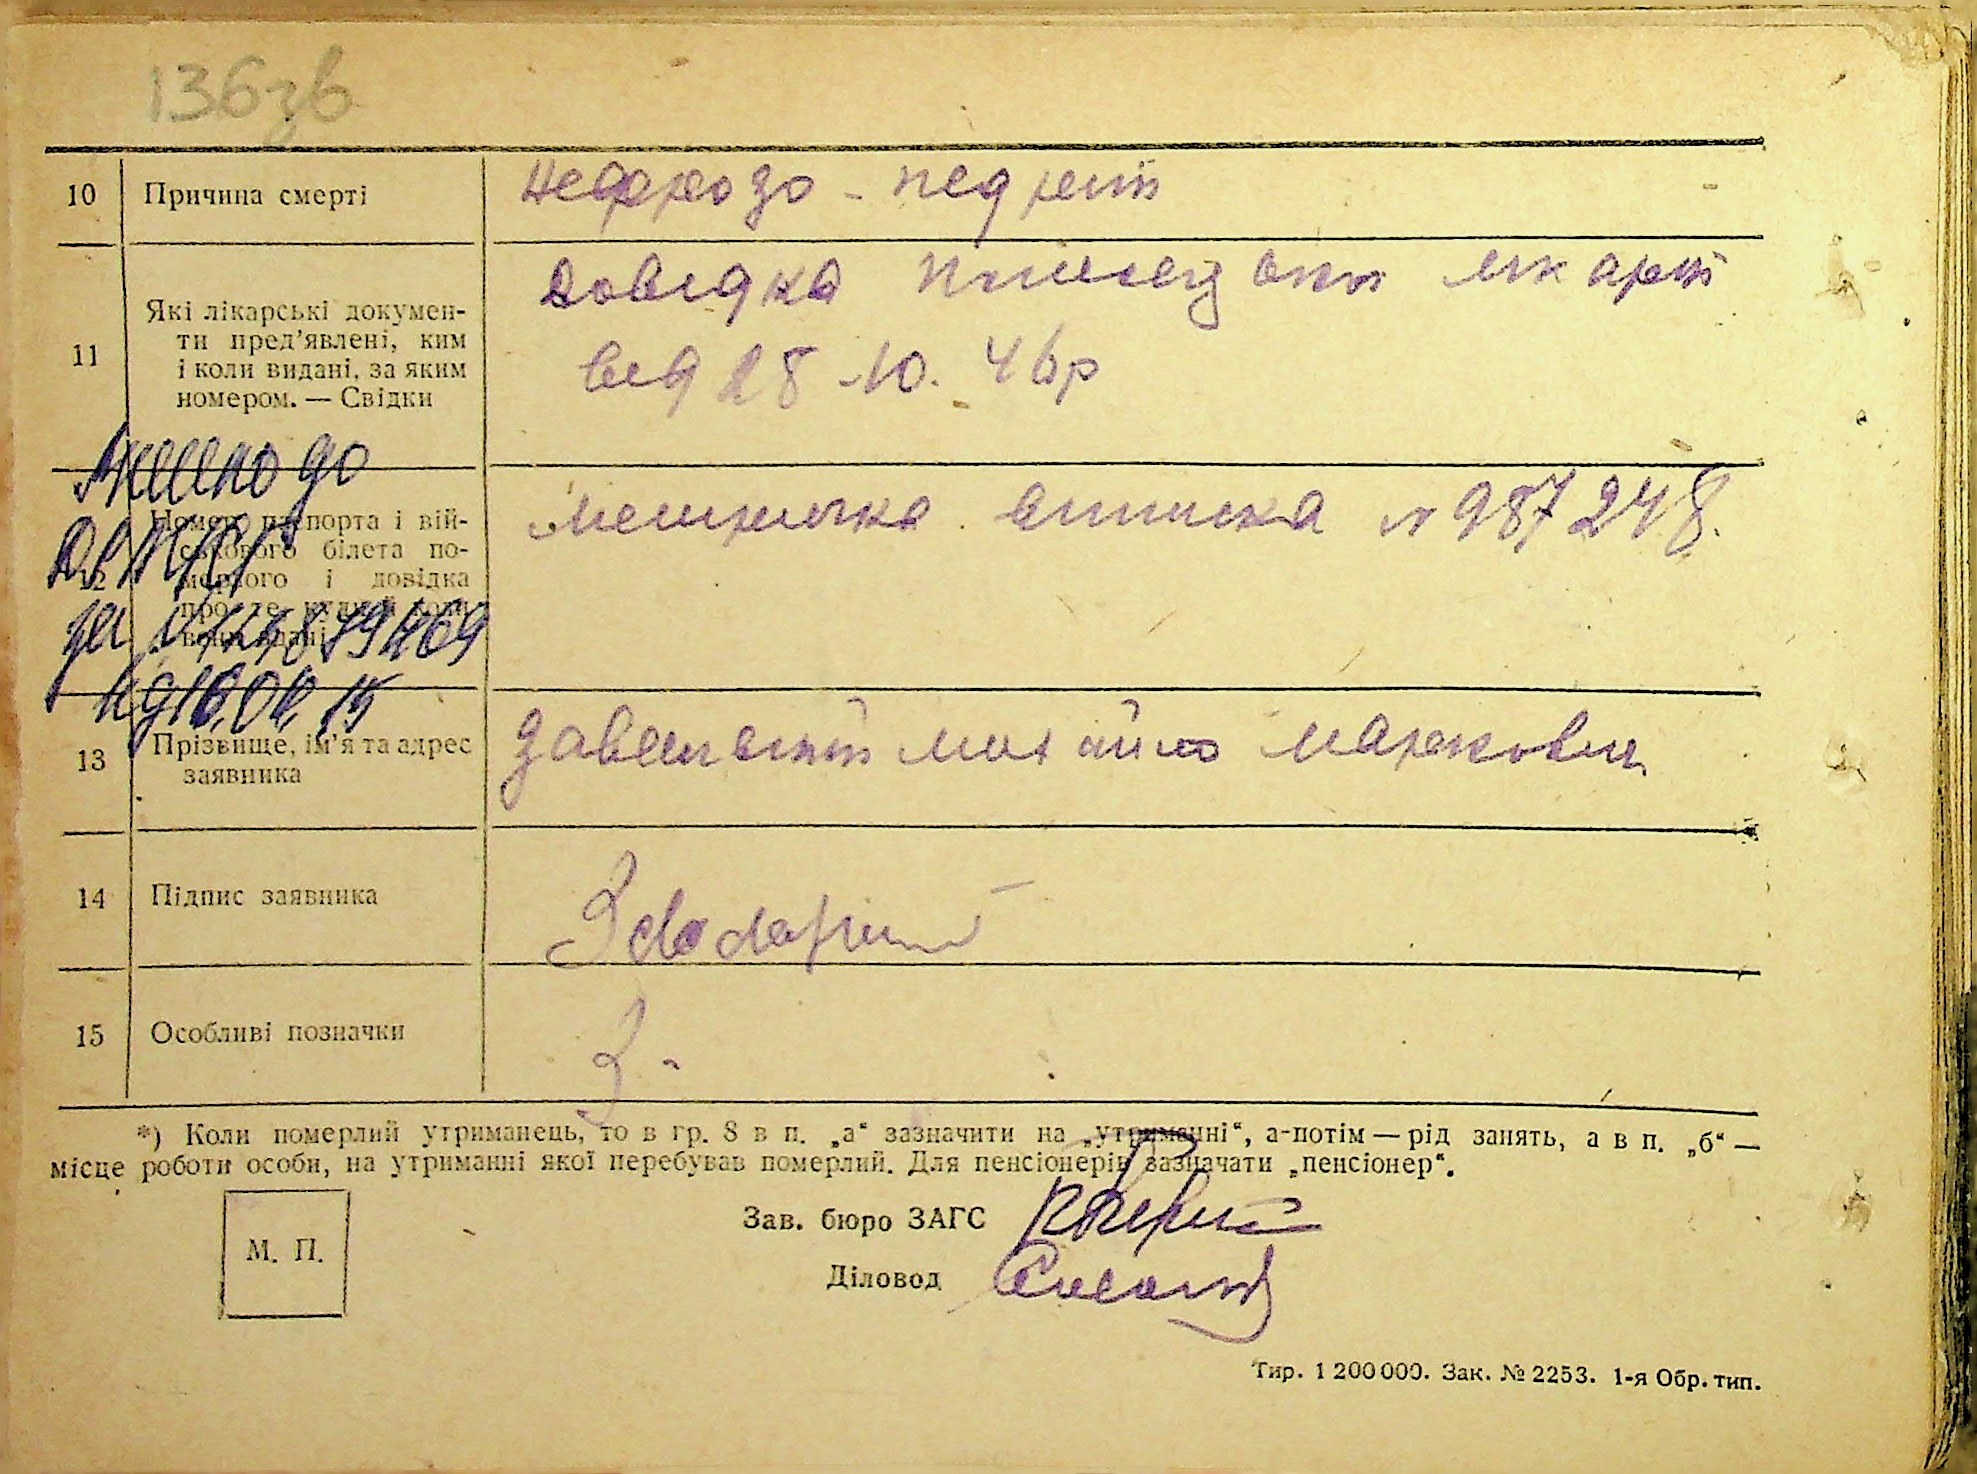 136зв
10 Причина смерті
Нефрозо - нефрит
11 Які лікарські докумен-
ти пред’явлені, ким
і коли видані, за яким
номером. — Свідки
Довидка лікарні
вид 28.10.46р
Внесено до
ДРАЦСГ
12 Номер паспорта і вій-
ськового білета по-
мерлого і довідка
про те, куди й коли
вони здані
Метрична виписка № 987248.
за №
від 16.04.15
13 Прізвище, ім’я та адрес
заявника
Михайло Маркович
14 Підпис заявника
15 Особливі позначки
*) Коли померлий утриманець, то в гр. 8 в п. „а“ зазначити на „утриманні“, а-потім — рід занять, а в п. „б“ —
місце роботи особи, на утриманні якої перебував померлий. Для пенсіонерів зазначати „пенсіонер“.
М. П.
Зав. бюро ЗАГС
Діловод
Тир. 1 200 000. Зак. № 2253. 1-я Обр. тип.